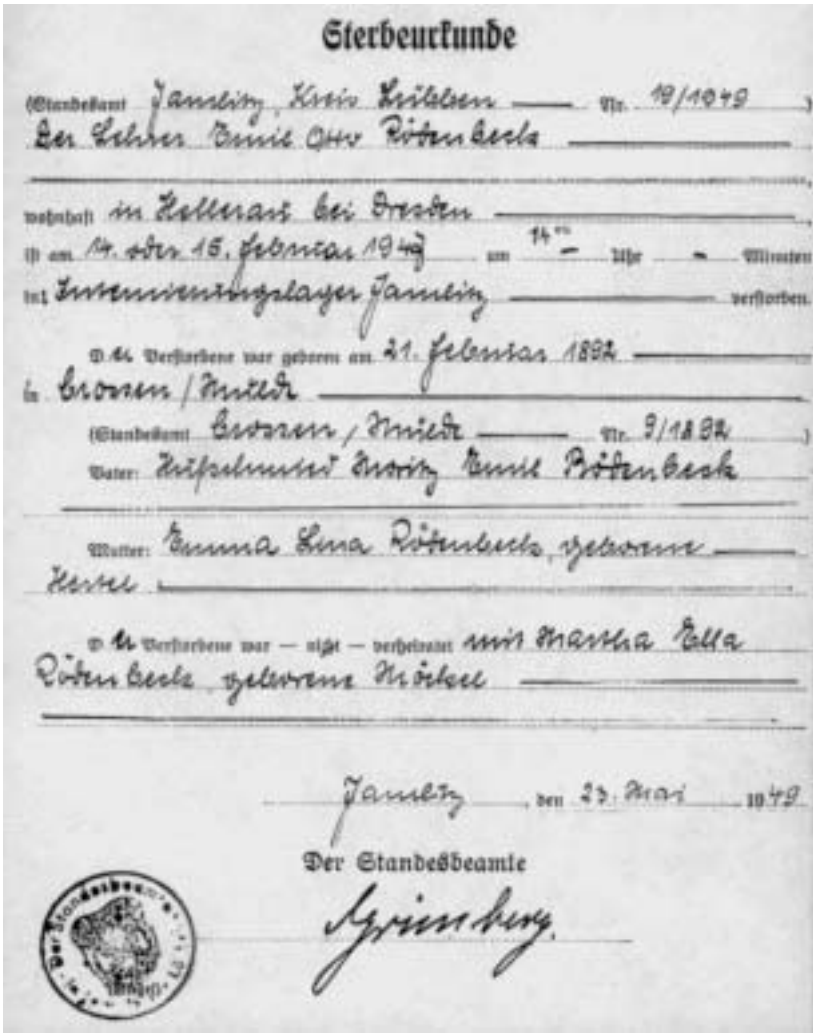 Sterbeurkunde
(Standesamt Jamlitz, Kreis Lübben Nr. 19/1949)
Der Lehrer Emil Otto Rödenbeck
wohnhaft in Hellerau bei Dresden
ist am 14. oder 15. Februar 1947 um 14 Uhr - Minuten
im Internierungslager Jamlitz verstorben.
D er Verstorbene war geboren am 21. Februar 1892
in Crossen / Mulde
(Standesamt Crossen / Mulde Nr. 9/1892)
Vater: Hufschmied Moritz Emil Rödenbeck
Mutter: Emma Lina Rödenbeck, geborene
Hertel
D er Verstorbene war — nicht — verheiratet mit Martha Ella
Rödenbeck, geborene Möckel
Jamlitz, den 23. Mai 1949
Der Standesbeamte
Der Standesbeamte